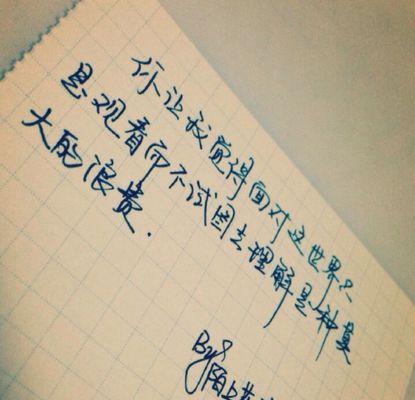 你让我觉得面对这世界只
是观看而不试图去理解是种莫
大的浪费.
By 陌上